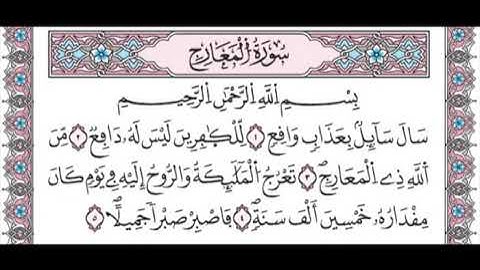 سُورَةُ الْمَعَارِجِ
بِسْمِ اللَّهِ الرَّحْمَٰنِ الرَّحِيمِ
سَالَ سَآئِلُۢ بِعَذَابٍ وَاقِعٍ ١ لِّلْكَٰفِرِينَ لَيْسَ لَهُۥ دَافِعٌ ٢ مِّنَ
اللَّهِ ذِے الْمَعَارِجِ ٣ تَعْرُجُ الْمَلَٰٓئِكَةُ وَالرُّوحُ إِلَيْهِ فِے يَوْمٍ كَانَ
مِقْدَارُهُۥ خَمْسِينَ أَلْفَ سَنَةٍ ٤ فَاصْبِرْ صَبْرًا جَمِيلًا ٥